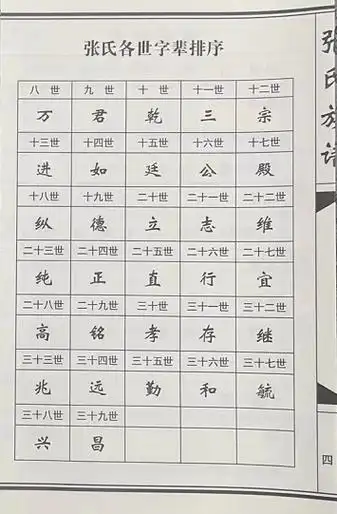 张氏各世字辈排序
八世 九世 十世 十一世 十二世
万 君 乾 三 宗
十三世 十四世 十五世 十六世 十七世
进 如 廷 公 殿
十八世 十九世 二十世 二十一世 二十二世
纵 德 立 志 维
二十三世 二十四世 二十五世 二十六世 二十七世
纯 正 直 行 宜
二十八世 二十九世 三十世 三十一世 三十二世
高 铭 孝 存 继
三十三世 三十四世 三十五世 三十六世 三十七世
兆 远 勤 和 毓
三十八世 三十九世
兴 昌
张氏族谱
四